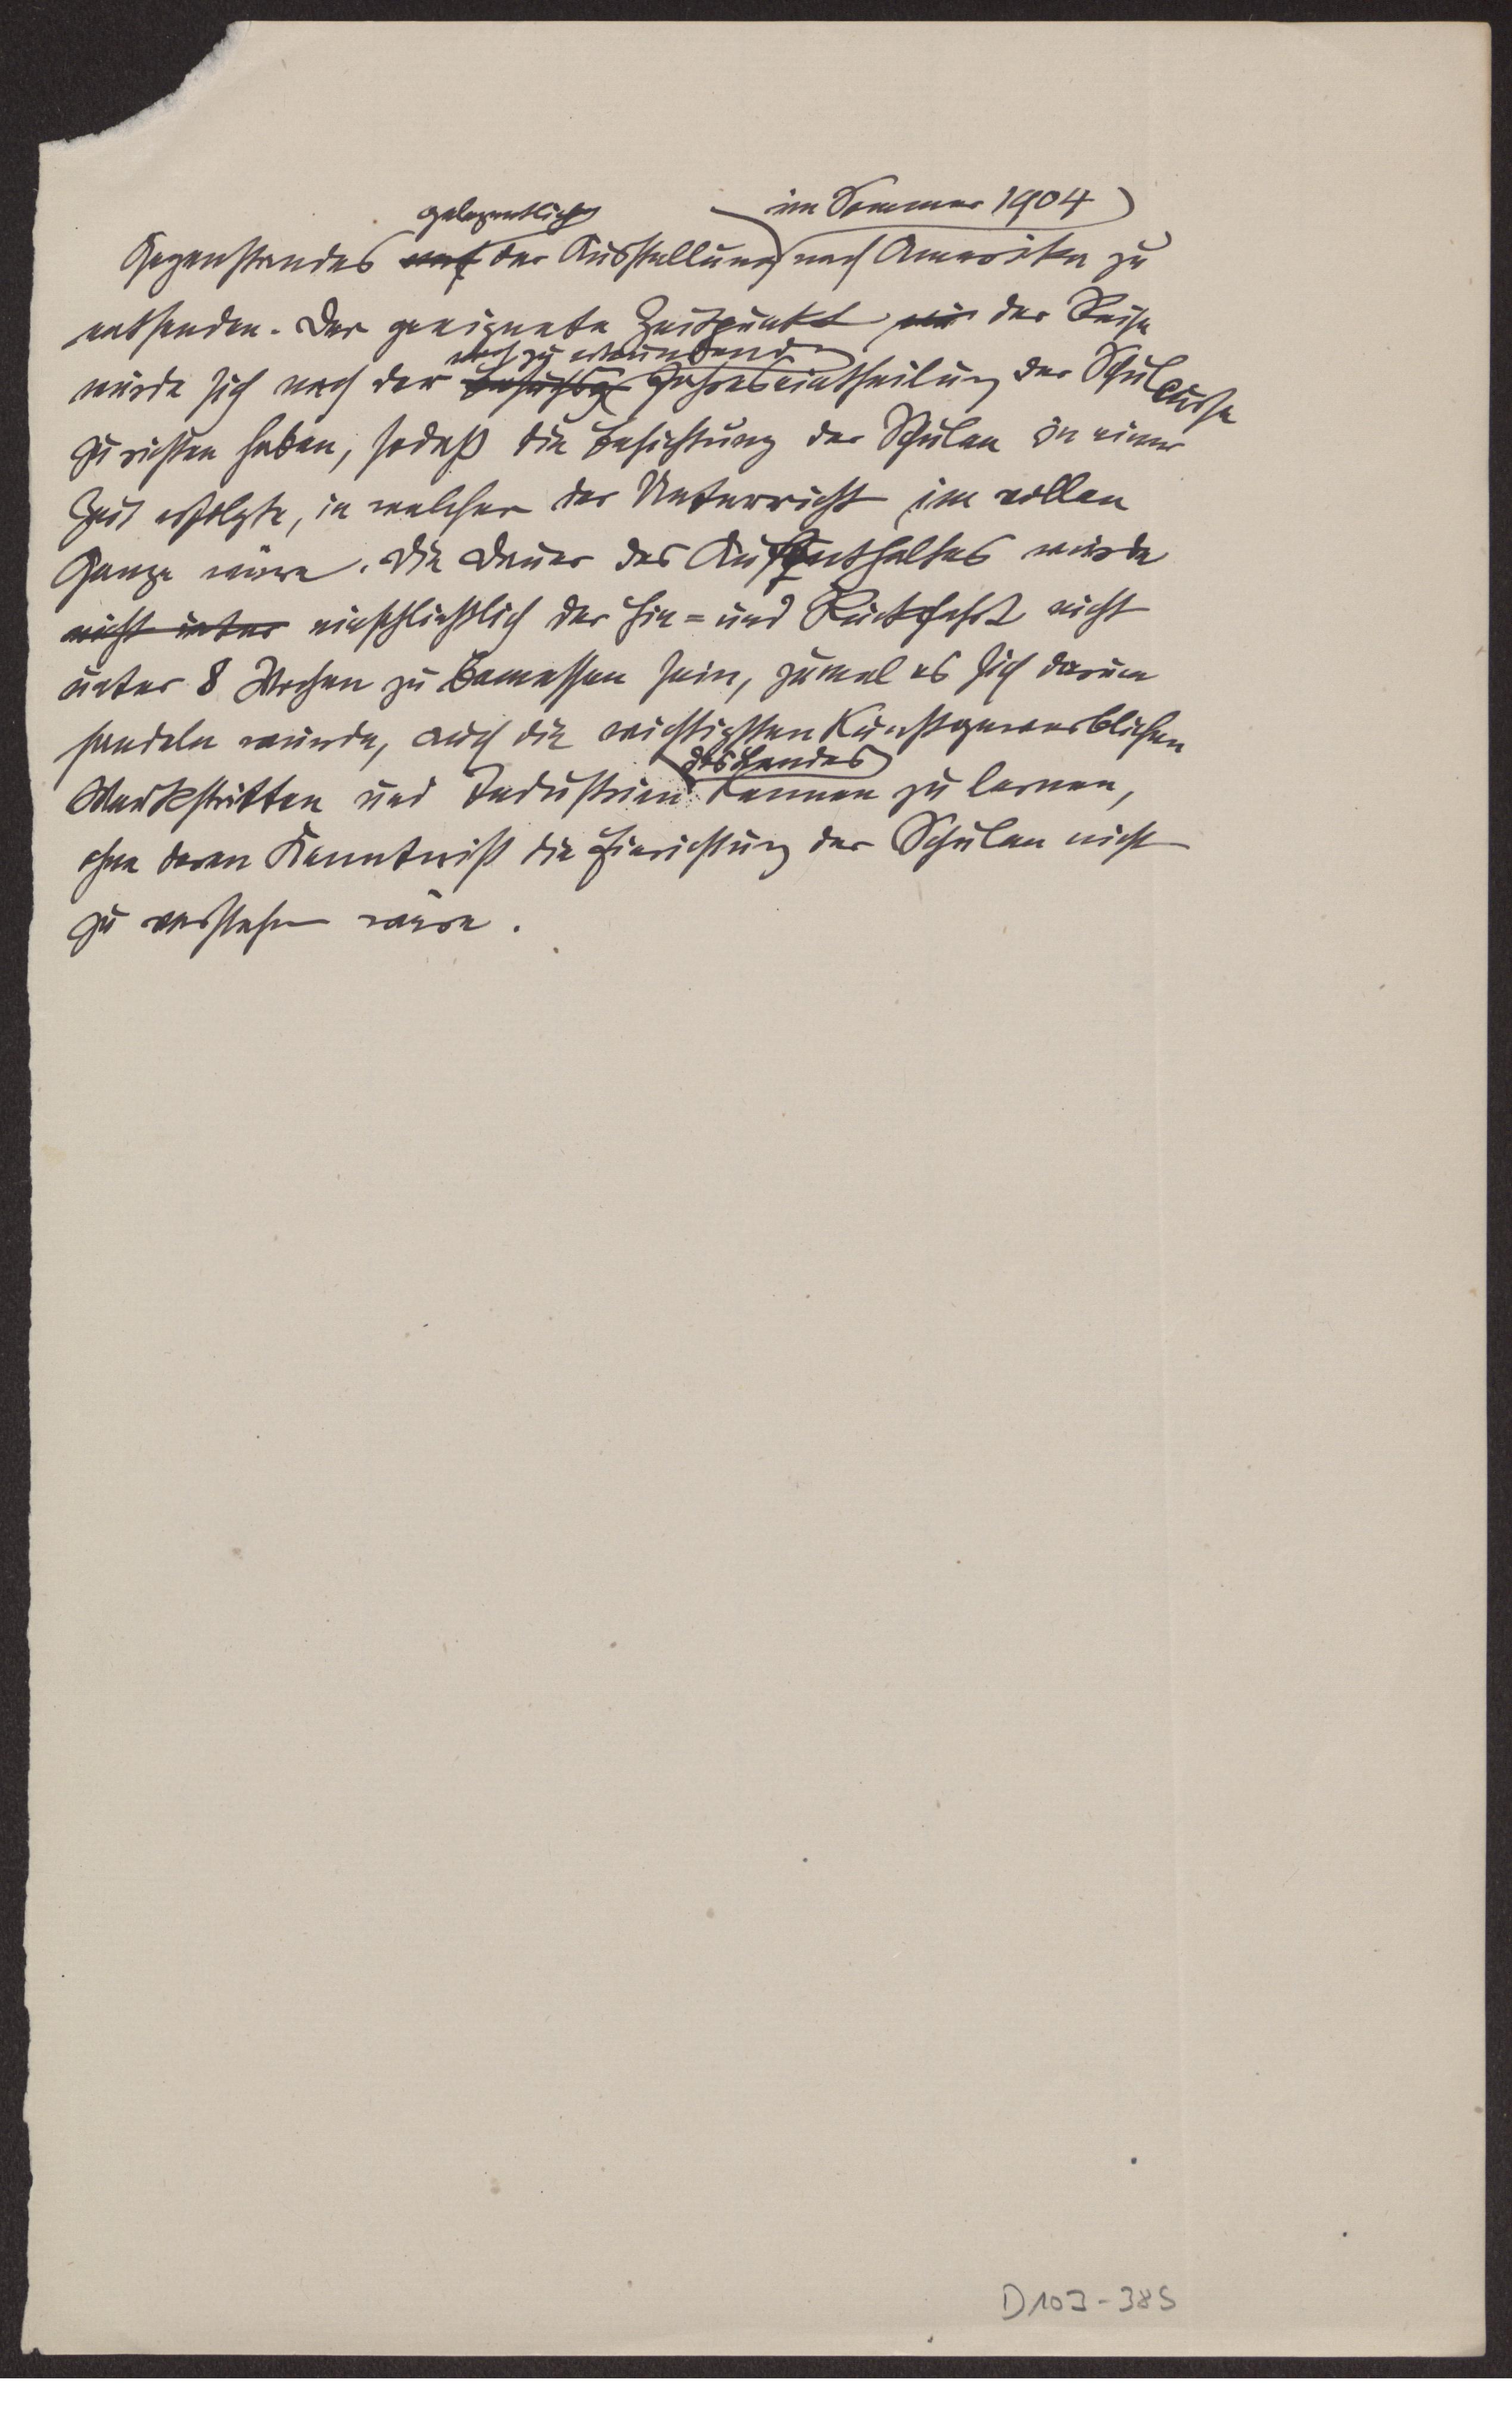 gelegentlich im Sommer 1904
Gegenstandes auf der Ausstellung nach Amerika zu
entsenden. Der geeignete Zeitpunkt der Reise
noch zu erkundenden
würde sich nach der Jahreseintheilung der Schulcurse
zu richten haben, sodaß die Besichtung der Schulen in einer
Zeit erfolgte, in welcher der Unterricht im vollen
Gange wäre. Die Dauer des Aufenthaltes würde
nicht unter einschließlich der Hin- und Rückfahrt nicht
unter 8 Wochen zu bemessen sein, zumal es sich darum
handeln würde, auch die wichtigsten Kunstgewerblichen
des Landes
Werkstätten und Industrien kennen zu lernen,
ohne deren Kenntniß die Einrichtung der Schulen nicht
zu verstehen wäre.
D103-385